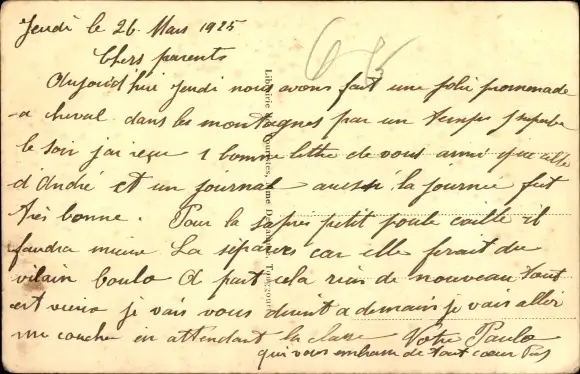 Jeudi le 26 Mars 1925
Chers parents
Aujourd'hui Jeudi nous avons fait une jolie promenade
a cheval dans les montagnes par un temps superbe
le soir j'ai reçu 1 bonne lettre de vous ainsi que celle
d'André et un journal aussi la journée fut
très bonne. Pour la petit poule caille il
faudra mieux la séparer car elle ferait du
vilain boulo A part cela rien de nouveau tout
est vieux je vais vous a demain je vais aller
me coucher en attendant la classe Votre Paulo
qui vous embrasse de tout cœur
Librairie des Touristes, Mme